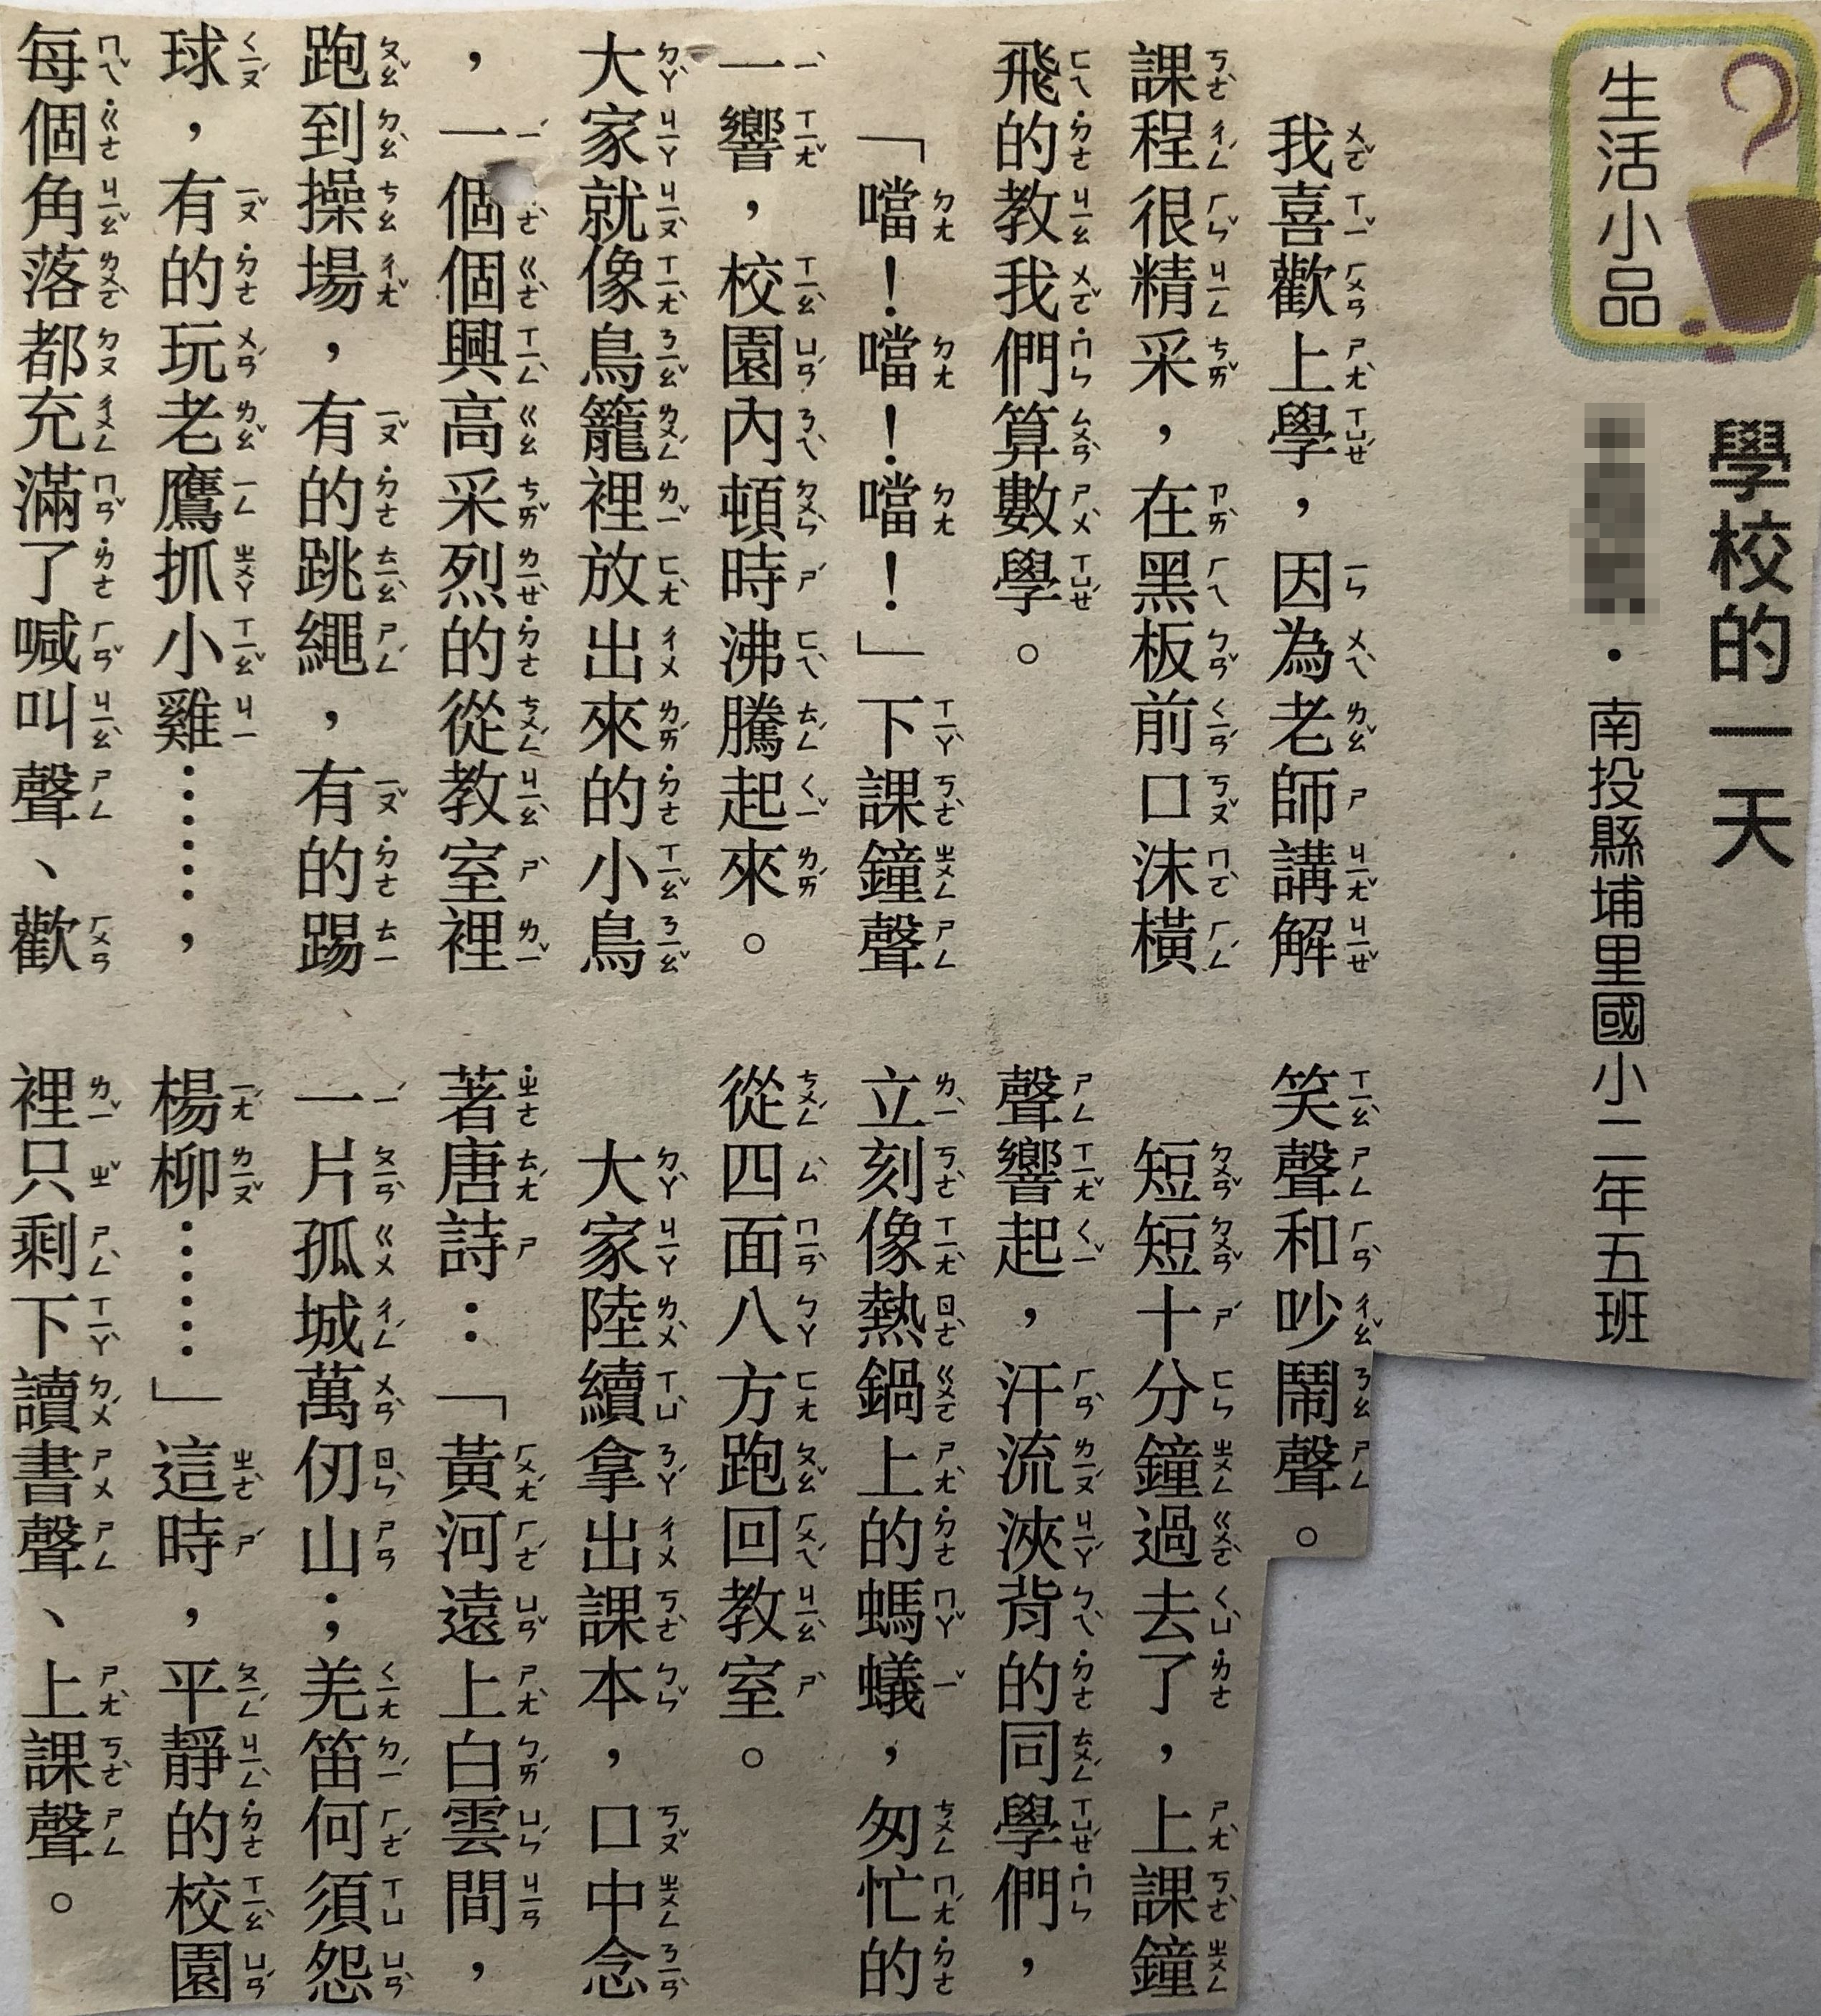 生活小品
學校的一天
・南投縣埔里國小二年五班
我喜歡上學，因為老師講解
課程很精采，在黑板前口沫橫
飛的教我們算數學。
「噹！噹！噹！」下課鐘聲
一響，校園內頓時沸騰起來。
大家就像鳥籠裡放出來的小鳥
，一個個興高采烈的從教室裡
跑到操場，有的跳繩，有的踢
球，有的玩老鷹抓小雞……，
每個角落都充滿了喊叫聲、歡
笑聲和吵鬧聲。
短短十分鐘過去了，上課鐘
聲響起，汗流浹背的同學們，
立刻像熱鍋上的螞蟻，匆忙的
從四面八方跑回教室。
大家陸續拿出課本，口中念
著唐詩：「黃河遠上白雲間，
一片孤城萬仞山；羌笛何須怨
楊柳……」這時，平靜的校園
裡只剩下讀書聲、上課聲。